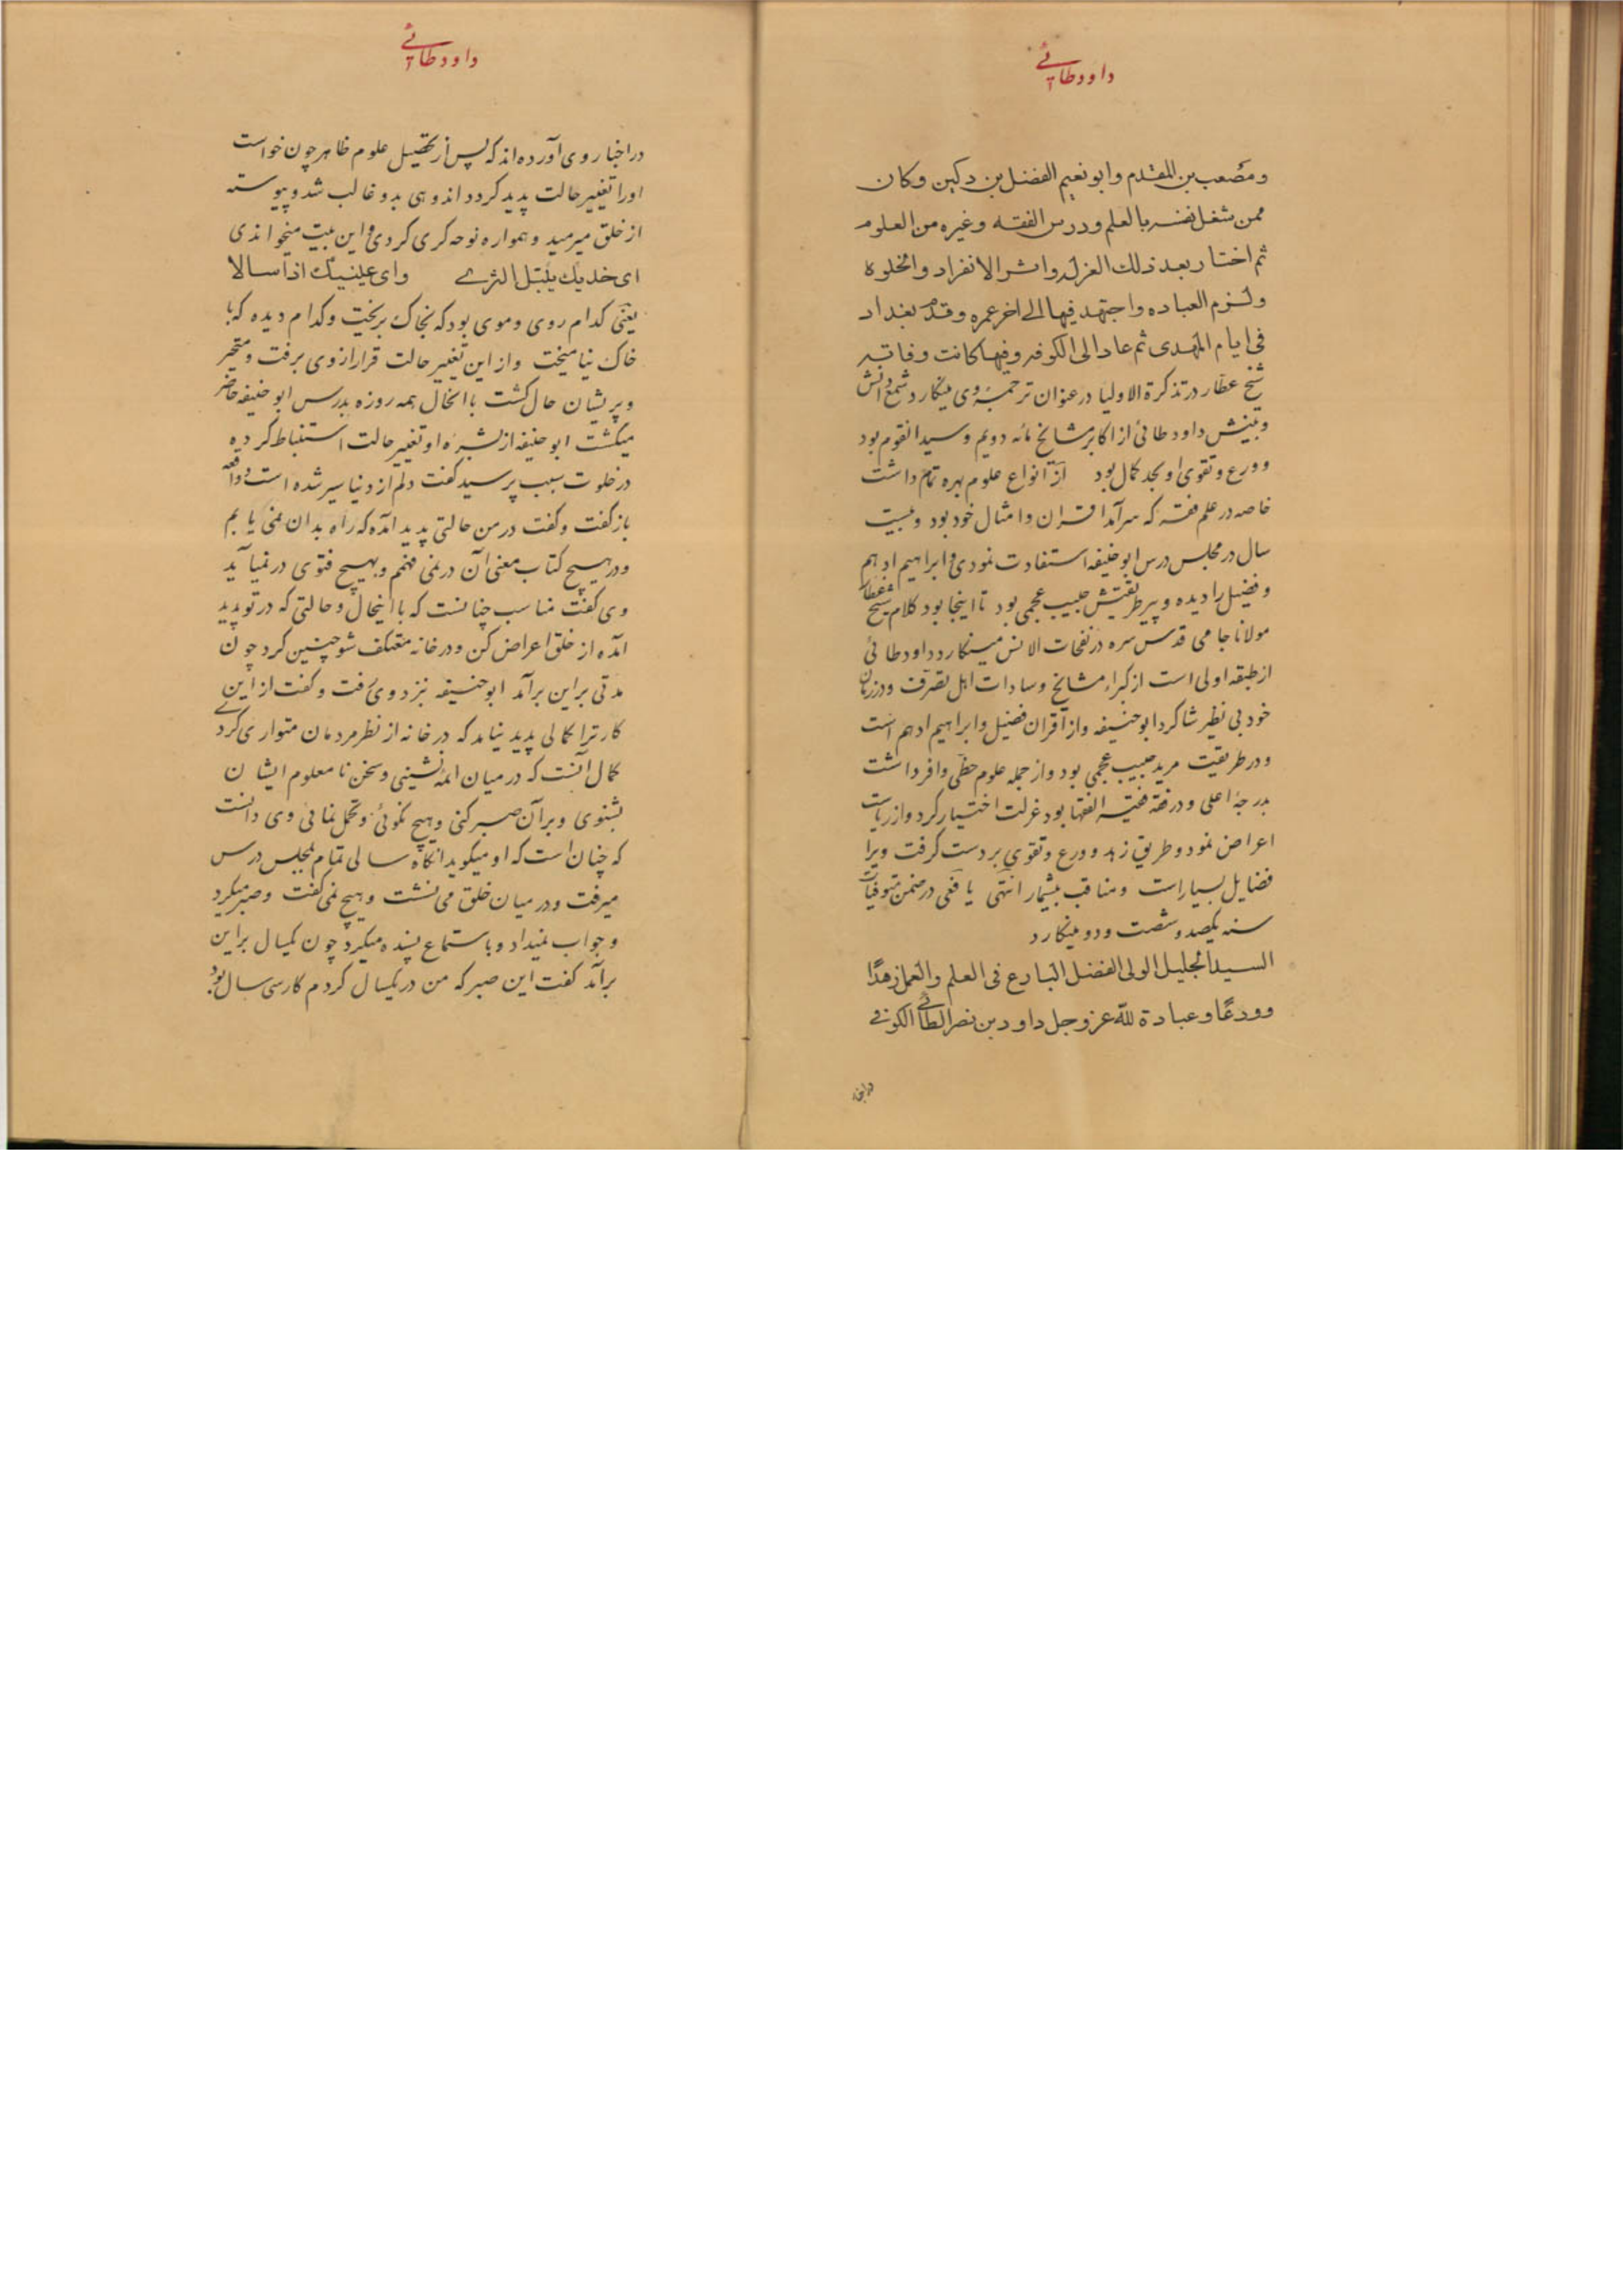 داود طائی
ومصعب بن المقدم وابو نعیم الفضل بن دکین وکان
ممن شغل نفسه بالعلم ودرس الفقه وغیره من العلوم
ثم اختار بعد ذلك العزله واثر الانفراد والخلوة
ولزم العباده واجتهد فیها الی اخر عمره وقدم بغداد
فی ایام المهدی ثم عاد الی الکوفه وفیها کانت وفاته
شیخ عطار در تذکرة الاولیا در عنوان ترجمهٔ وی مینکارد شمع دانش
وبینش داود طائی از اکابر مشایخ مائه دویم وسید القوم بود
وورع وتقوی او بحد کمال بود از انواع علوم بهره تمام داشت
خاصه در علم فقه که سرآمد اقران وامثال خود بود وبیست
سال در مجلس درس ابو حنیفه استفادت نمودی وابراهیم ادهم
وفضیل را دیده وپیر طریقتش حبیب عجمی بود تا اینجا بود کلام شیخ عطار
مولانا جامی قدس سره در نفحات الانس مینکارد داود طائی
از طبقه اولی است از کبراء مشایخ وسادات اهل تصوف ودر زمان
خود بی نظیر شاکرد ابو حنیفه واز اقران فضیل وابراهیم ادهم است
ودر طریقت مرید حبیب عجمی بود واز جمله علوم حظی وافر داشت
بدرجهٔ اعلی ودر فقه فقیه الفقها بود عزلت اختیار کرد واز ریاست
اعراض نمود وطریق زهد وورع وتقوی بر دست کرفت ویرا
فضایل بسیار است ومناقب بیشمار انتهی یافعی در ضمن متوفیات
سنه یکصد وشصت ودو مینکارد
السید الجلیل الولی الفضل البارع فی العلم والعمل زهدًا
وورعًا وعبادة لله عز وجل داود بن نصر الطائی الکوفی
در اخبا
داود طائی
در اخبار وی آورده اند که پس از تحصیل علوم ظاهر چون خواست
اورا تغییر حالت پدید کردد اندوهی بدو غالب شد وپیوسته
از خلق میرمید وهمواره نوحه کری کردی واین بیت میخواندی
ای خدیك یتبدل الثری وای عینیك اذا سالا
یعنی کدام روی وموی بود که بخاک بریخت وکدام دیده که با
خاک نیامیخت واز این تغییر حالت قرار از وی برفت ومتحیر
وپریشان حال کشت با انحال همه روزه بدرس ابو حنیفه حاضر
میکشت ابو حنیفه از بشرهٔ او تغییر حالت استنباط کرده
در خلوت سبب پرسید کفت دلم از دنیا سیر شده است وواقعه
باز کفت وکفت در من حالتی پدید آمده که راه بدان نمی یابم
ودر هیچ کتاب معنی آن در نمی فهمم وبهیچ فتوی در نمیآید
وی کفت مناسب چنانست که با اینحال وحالتی که در تو پدید
آمده از خلق اعراض کن ودر خانه معتکف شو چنین کرد چون
مدتی بر این برآمد ابو حنیفه نزد وی رفت وکفت از این
کار ترا کمالی پدید نیامد که در خانه از نظر مردمان متواری کردی
کمال آنست که در میان ائمه نشینی وسخن نا معلوم ایشان
بشنوی وبر آن صبر کنی وهیچ نکوئی وتحمل نمائی وی دانست
که چنان است که او میکوید انکاه سالی تمام بمجلس درس
میرفت ودر میان خلق می نشست وهیچ نمی کفت وصبر میکرد
وجواب نمیداد وباستماع بسنده میکرد چون یکسال بر این
برآمد کفت این صبر که من در یکسال کردم کار سی سال بود